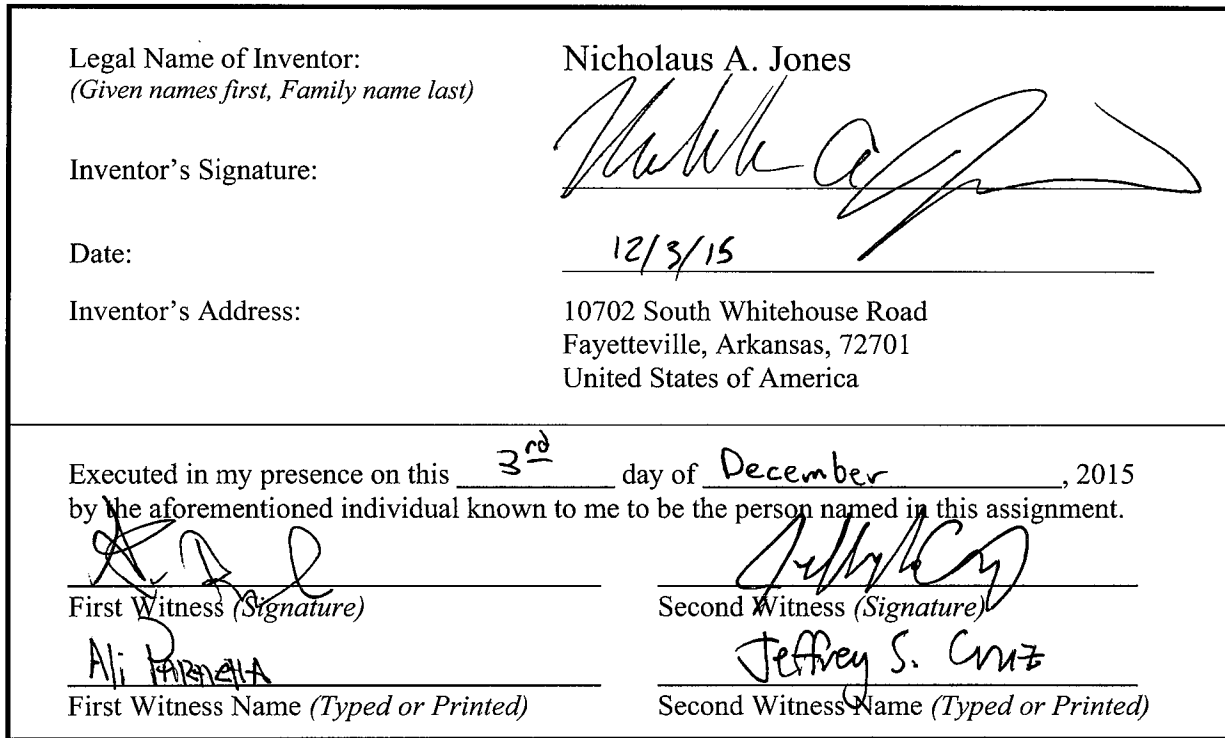 Legal Name of Inventor: Nicholaus A. Jones
(Given names first, Family name last)
Inventor's Signature:
Date: 12/3/15
Inventor's Address: 10702 South Whitehouse Road
Fayetteville, Arkansas, 72701
United States of America
Executed in my presence on this 3rd day of December, 2015
by the aforementioned individual known to me to be the person named in this assignment.
First Witness (Signature) Second Witness (Signature)
Ali Jeffrey S. Cruz
First Witness Name (Typed or Printed) Second Witness Name (Typed or Printed)